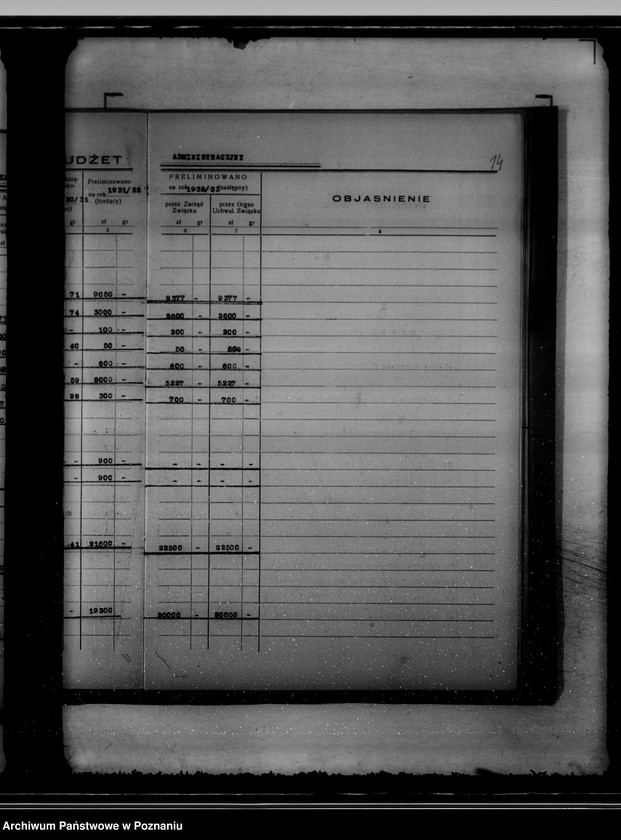 UDŻET ADMINISTRACYJNY 14
Preliminowano PRELIMINOWANO
na rok 1931/32 na rok 1932/33 (następny) OBJASNIENIE
30/31 (bieżący) przez Zarząd Związku przez Organ Uchwal. Związku
gr zł gr zł gr zł gr
5 6 7 8
71 9050 - 9377 - 9377 -
74 3000 - 2600 - 2600 -
- 100 - 200 - 200 -
40 50 - 50 - 50
- 600 - 600 - 600 -
59 8000 - 5227 - 5227 -
98 300 - 700 - 700 -
- 900 - - - - -
- 900 - - - - -
41 21600 - 22500 - 22500 -
- 19300 20000 - 20000 -
Archiwum Państwowe w Poznaniu